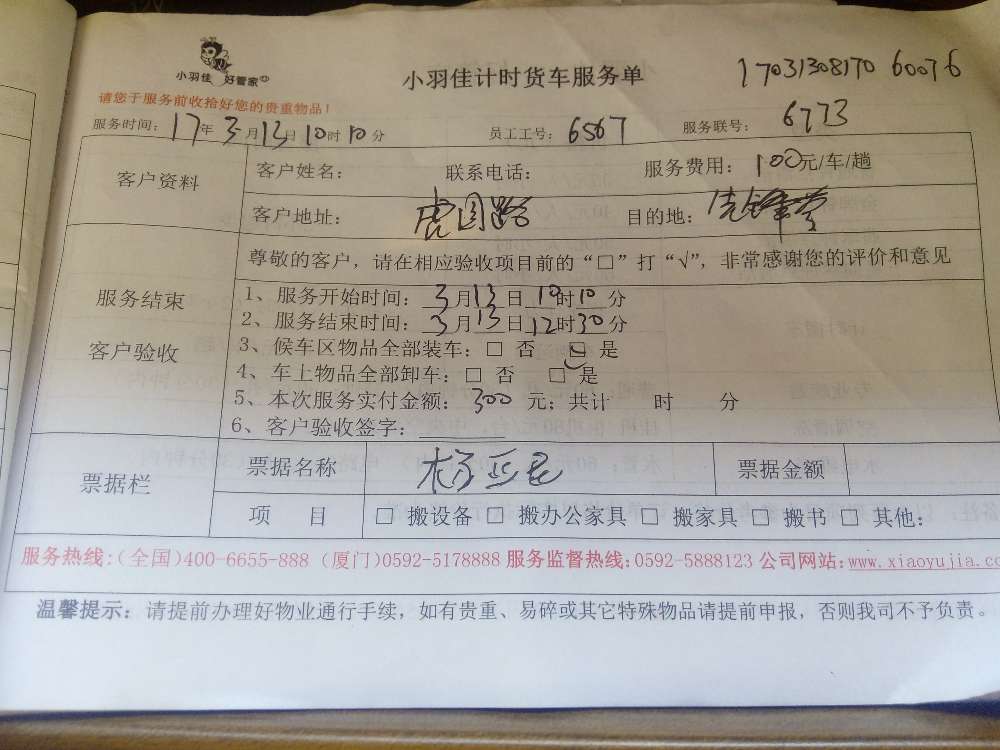 小羽佳 好管家
小羽佳计时货车服务单 17031308170 60076
请您于服务前收拾好您的贵重物品！
服务时间：17年3月13日10时10分 员工工号：6567 服务联号：6773
客户资料 客户姓名： 联系电话： 服务费用：100元/车/趟
客户地址：虎园路 目的地：
服务结束 客户验收
尊敬的客户，请在相应验收项目前的“□”打“√”，非常感谢您的评价和意见
1、服务开始时间：3月13日10时10分
2、服务结束时间：3月13日12时30分
3、候车区物品全部装车：□ 否 ☑ 是
4、车上物品全部卸车：□ 否 □ 是
5、本次服务实付金额：300元；共计 时 分
6、客户验收签字：
票据栏 票据名称 票据金额
项 目 □ 搬设备 □ 搬办公家具 □ 搬家具 □ 搬书 □ 其他：
服务热线：(全国)400-6655-888 (厦门)0592-5178888 服务监督热线：0592-5888123 公司网站：www.xiaoyujia.co
温馨提示：请提前办理好物业通行手续，如有贵重、易碎或其它特殊物品请提前申报，否则我司不予负责。